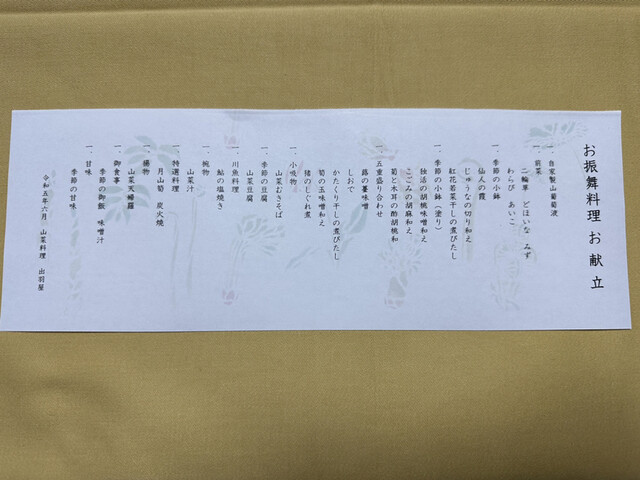 お振舞料理 お献立
一、自家製山葡萄液
一、前菜
二輪草 どほいな みず
わらび あいこ
一、季節の小鉢
仙人の霞
じゅうなの切り和え
紅花若菜干しの煮びたし
一、季節の小鉢(塗り)
独活の胡桃味噌和え
こごみの胡麻和え
筍と木耳の酢胡桃和
一、五重盛り合わせ
蕗の薹味噌
しおで
かたくり干しの煮びたし
筍の玉味噌和え
猪のしぐれ煮
一、小吸物
山菜むきそば
一、季節の豆腐
山菜豆腐
一、川魚料理
鮎の塩焼き
一、椀物
山菜汁
一、特選料理
月山筍 炭火焼
一、揚物
山菜天婦羅
一、御食事
季節の御飯 味噌汁
一、甘味
季節の甘味
令和五年六月 山菜料理 出羽屋